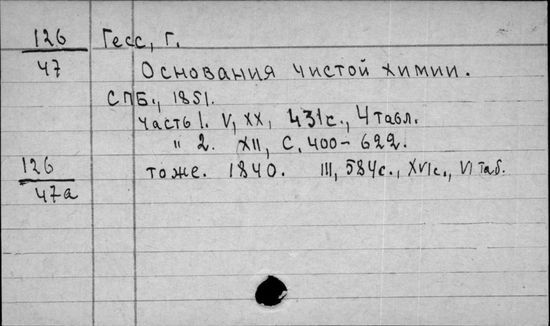 126 Гесс, Г.
47 Основания чистой химии.
СПБ., 1851.
Часть 1. V, XX, 431 с., 4 табл.
" 2. XII, С. 400-622.
126 тоже. 1840. III, 584 с., XVI с., VI таб.
47а